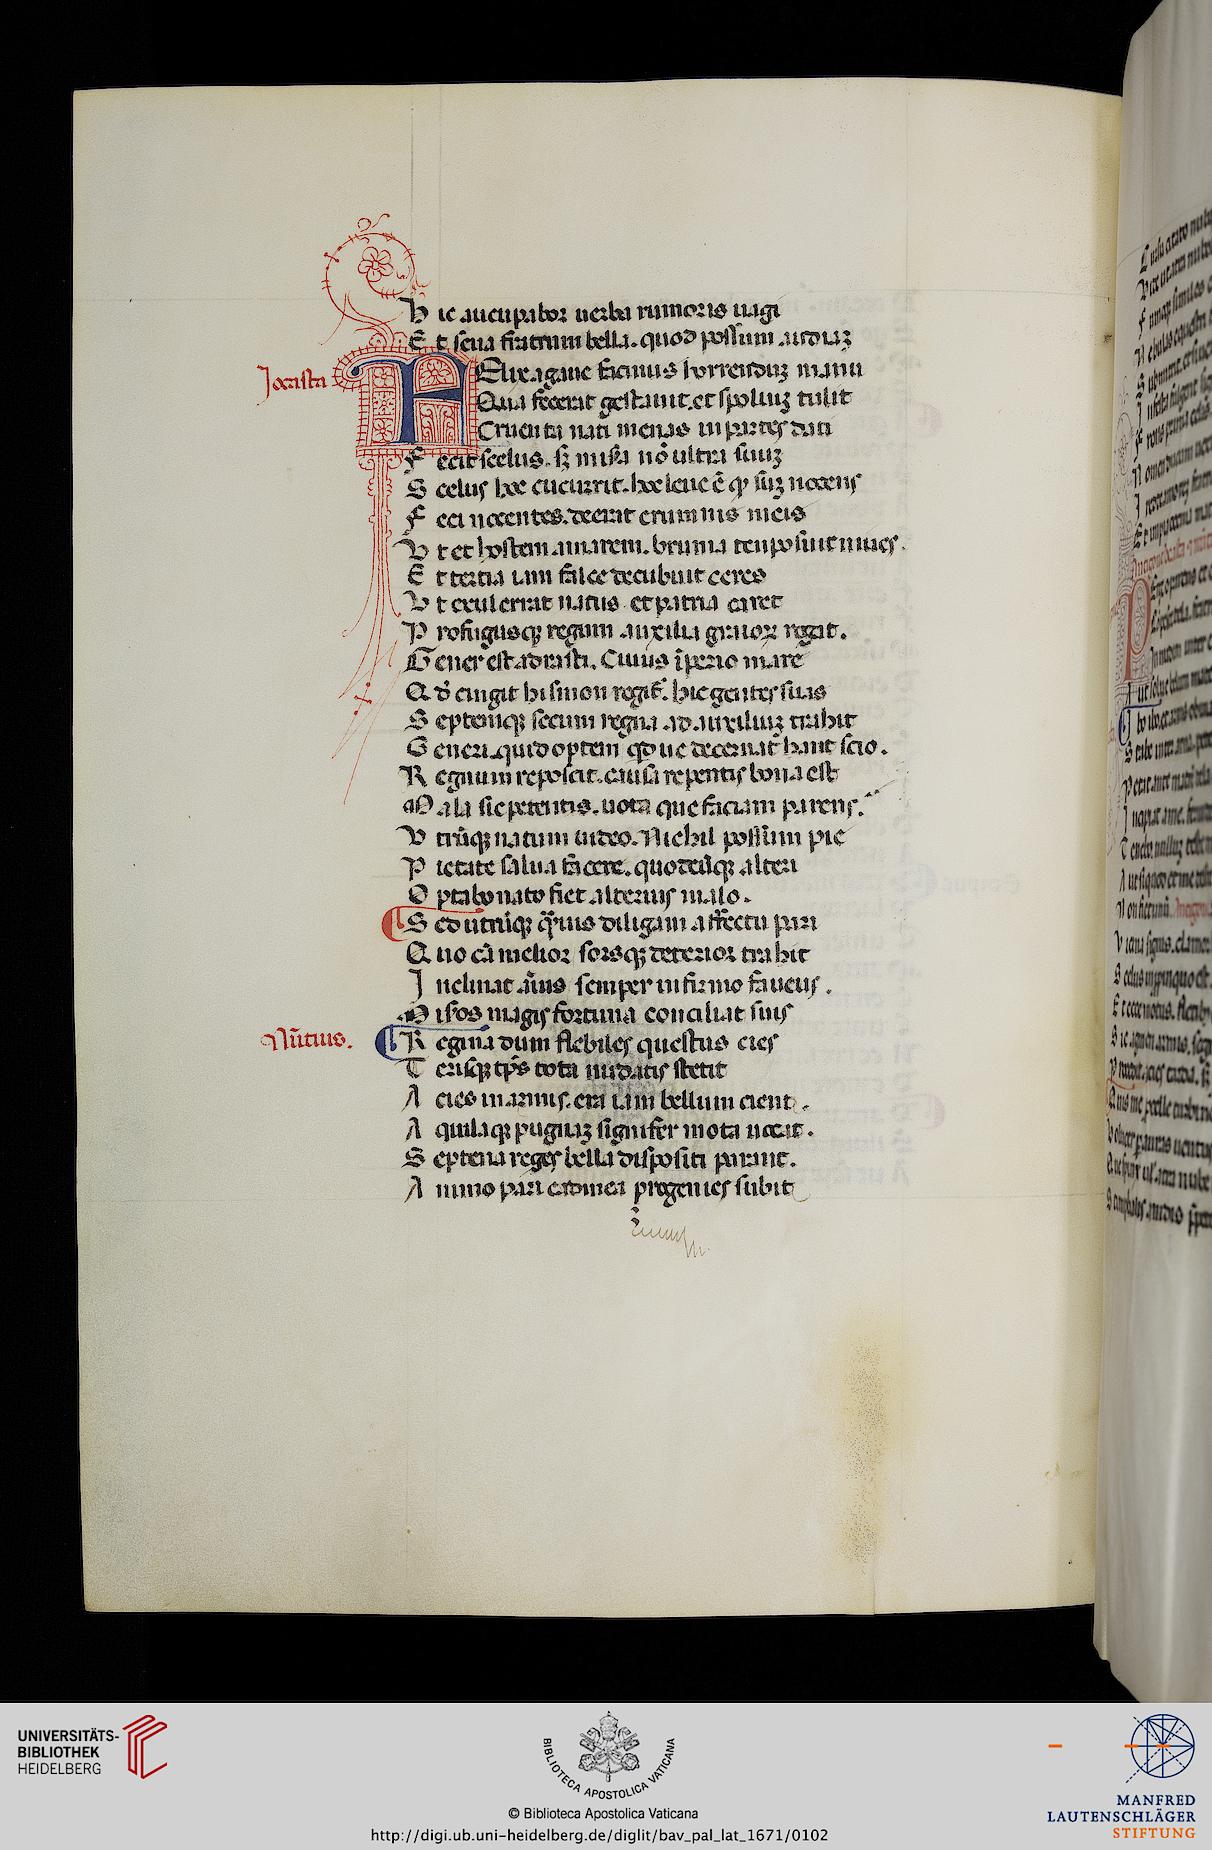 H ic aucupabor uerba rumoris uagi
E t seua fratrum bella. quod possum audiaȝ
Jocasta
FElix agaue facinus horrenduȝ manu
Qua fecerat gestauit. et spoliuȝ tulit
Cruenta nati menas in partes dati
F ecit scelus. sȝ misera nō ultra suuȝ
S celus hoc cucurrit. hoc leue ē qꝫ suȝ nocens
F eci nocentes. deerat erumnis meis
V t et hostem amarem. bruma ter posuit niues.
E t tertia iam falce decubuit ceres
V t exul errat natus et patria caret
P rofugusqꝫ regum auxilia graiorꝫ rogat.
G ener est adrasti. Cuius īperio mare
Q đ cingit hismon regit̄. hic gentes suas
S eptemqꝫ secum regna ad auxiliuȝ trahit
G eneri. quid optem qđ ue decernāt haut scio.
R egnum reposcit. causa repentis bona est
M ala sic petentis. uota que faciam parens.
V trūqꝫ natum uideo. Nichil possum pie
P ietate salua facere. quodcūqꝫ alteri
O ptabo nato fiet alterius malo.
S ed utrūqꝫ quāuis diligam affectu pari
Q uo cā melior sorsqꝫ deterior trahit
I nclinat aīus semper infirmo fauens.
M isos magis fortuna conciliat suis
Nūtius.
R egina dum flebiles questus cies
T erisqꝫ tp̄s tota nudatis stetit
A cies in armis. era iam bellum cient.
A quilaqꝫ pugnaȝ signifer mota uocat.
S eptena reges bella dispositi parant.
A nimo pari cadmea progenies subit
UNIVERSITÄTS-
BIBLIOTHEK
HEIDELBERG
BIBLIOTECA APOSTOLICA VATICANA
© Biblioteca Apostolica Vaticana
http://digi.ub.uni-heidelberg.de/diglit/bav_pal_lat_1671/0102
MANFRED
LAUTENSCHLÄGER
STIFTUNG